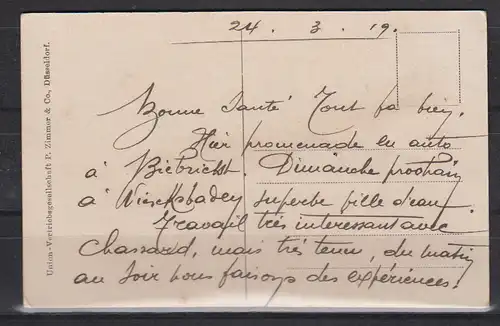 24. 3. 19.
Bonne Santé Tout va bien.
Hier promenade en auto
à Biebricht. Dimanche prochain
à Wiesbaden superbe ville d'eau.
Travail très interessant avec
Chassard, mais très tenu, du matin
au soir nous faisons des expériences.
Union-Vertriebsgesellschaft P. Zimmer & Co., Düsseldorf.